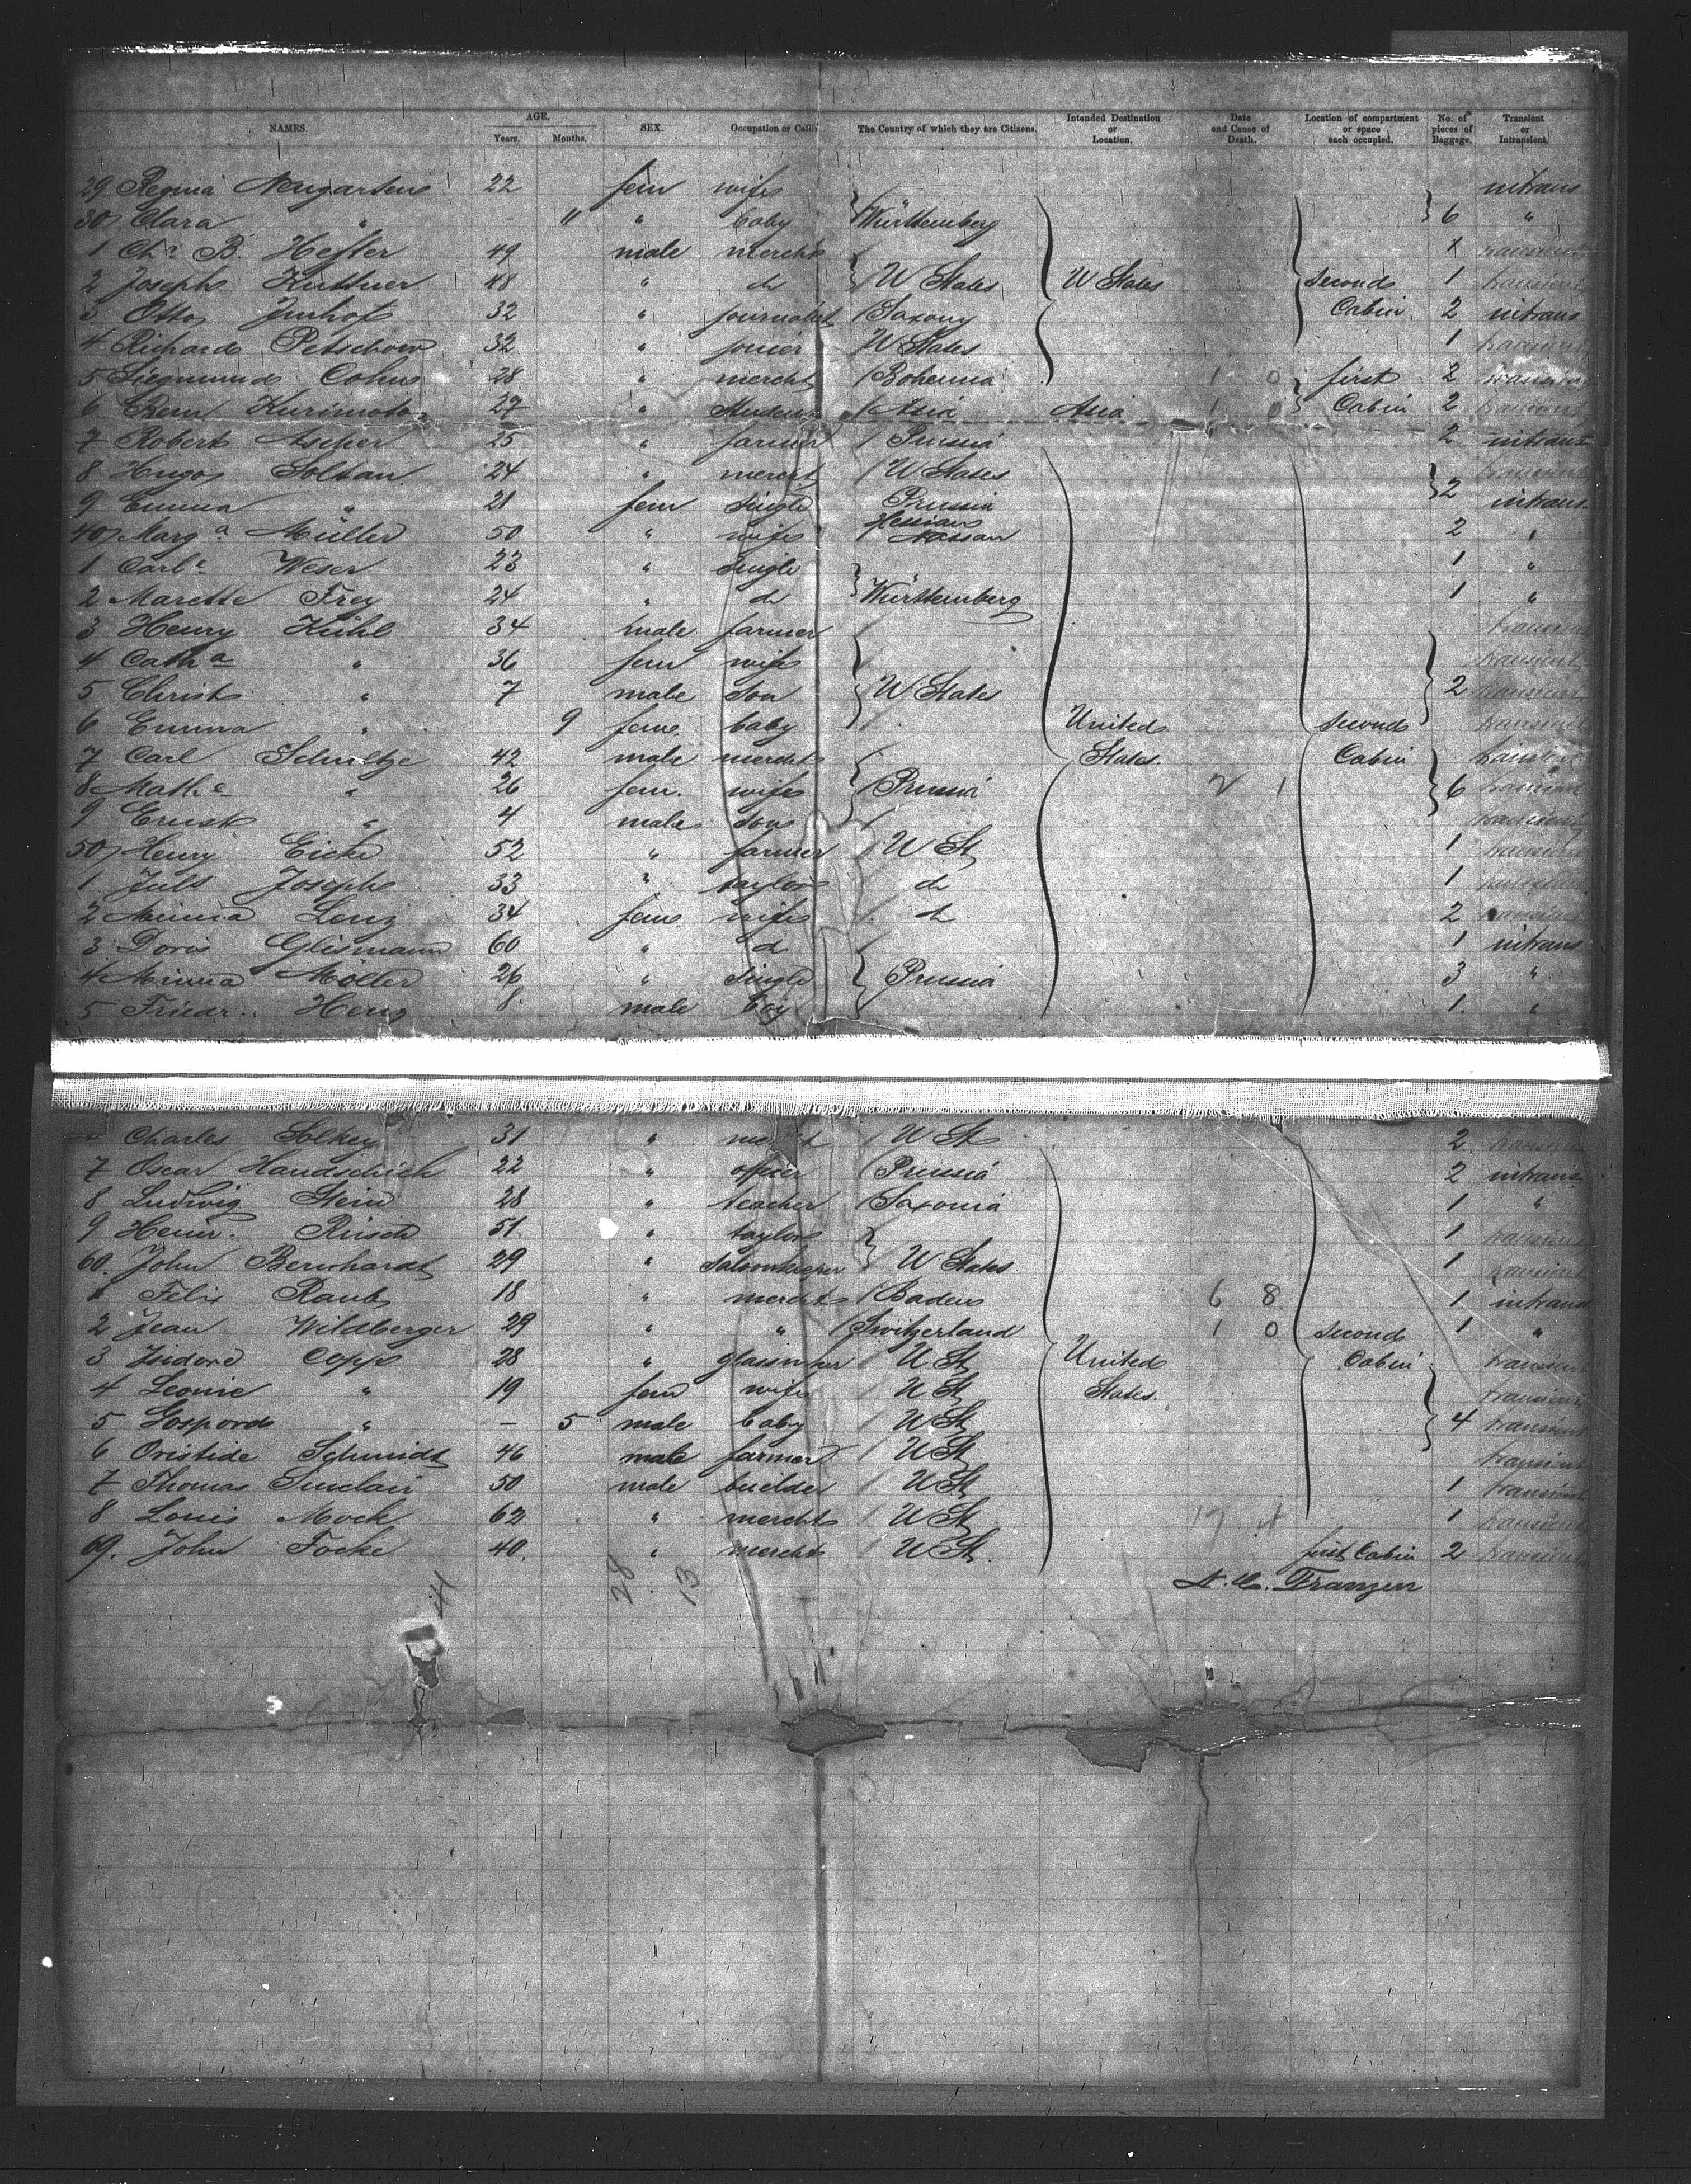 NAMES. AGE. Years. Months. SEX. Occupation or Callin The Country of which they are Citizens. Intended Destination or Location. Date and Cause of Death. Location of compartment or space each occupied. No. of pieces of Baggage. Transient or Intransient.
29 Regina Neugartens 22 fem wife intrans
30 Clara " - 11 " baby Württemberg 6 "
1 Chs B. Hefter 49 male mercht 1 transient
2 Joseph Kuttner 48 " do U States U States second 1 transient
3 Otto Imhof 32 " journalist Saxony Cabin 2 intrans
4 Richard Petschow 32 " joiner U States 1 transient
5 Siegmund Cohn 28 " mercht Bohemia 1 0 first 2 transient
6 Rem Kurimoto 27 " Student Asia Asia 1 0 Cabin 2 transient
7 Robert Ascher 25 " farmer Prussia 2 intrans
8 Hugo Soltan 24 " mercht U States transient
9 Emma " 21 fem single Prussia 2 intrans
40 Marga Müller 50 " wife Hessian Nassau 2 "
1 Carle Weser 23 " single 1 "
2 Marette Frey 24 " do Württemberg 1 "
3 Henry Kühl 34 male farmer transient
4 Catha " 36 fem wife transient
5 Christ " 7 male son U States 2 transient
6 Emma " 9 fem. baby United second transient
7 Carl Schultze 42 male mercht States. Cabin transient
8 Mathe " 26 fem. wife Prussia 2 1 6 transient
9 Ernst " 4 male son transient
50 Henry Eicke 52 " farmer U St 1 transient
1 Juls Joseph 33 " taylor do 1 transient
2 Minna Lenz 34 fem. wife do 2 transient
3 Doris Glismann 60 " do 1 intrans
4 Minna Möller 26 " single Prussia 3 "
5 Friedr. Heng 8 male boy 1. "
Charles Solkey 31 " U St 2 transient
7 Oscar Handschich 22 " offier Prussia 2 intrans
8 Ludwig Stein 28 " teacher Saxonia 1 "
9 Heinr. Rusch 51 " taylor 1 transient
60. John Bernhardt 29 " Saloonkeeper U States 1 transient
1 Felix Raub 18 " mercht Baden 6 8 1 intrans
2 Jean Wildberger 29 " " Switzerland 1 0 second 1 "
3 Isidore Copp 28 " U St United Cabin transient
4 Leonie " 19 fem wife U St States. transient
5 Gospord " - 5 male baby U St 4 transient
6 Oristide Schmidt 46 male farmer U St transient
7 Thomas Sinclair 50 male builder U St 1 transient
8 Louis Mock 62 " mercht U St 17 1 transient
69. John Focke 40. " mercht U St. first Cabin 2 transient
28 13 Franzen